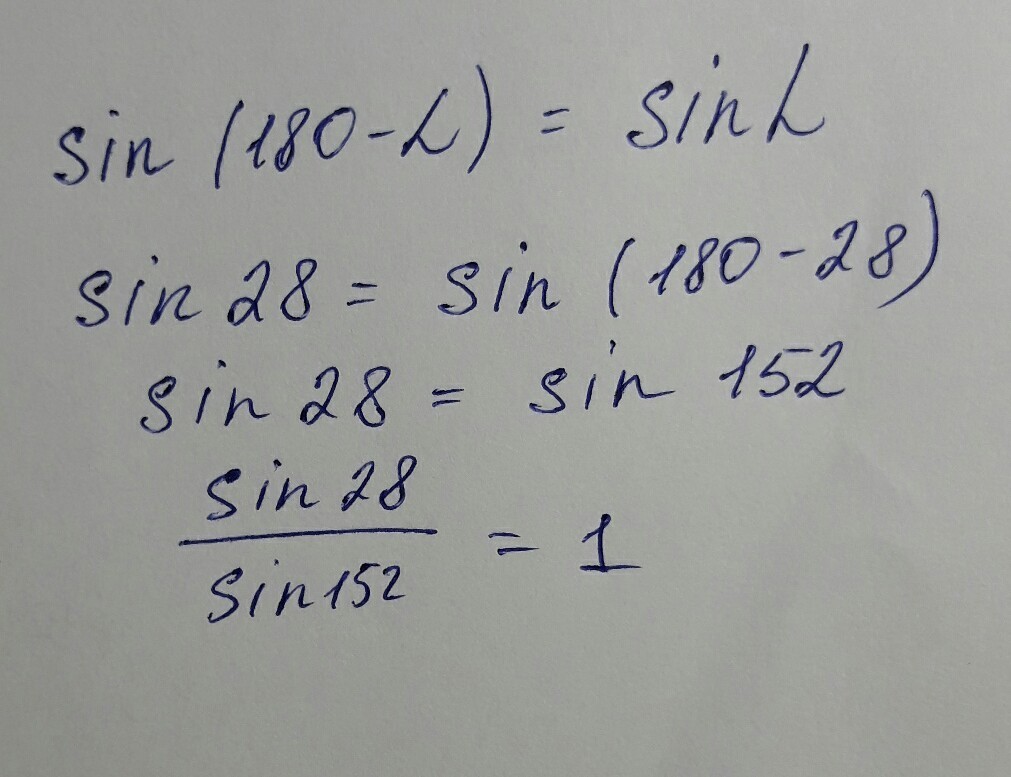 sin (180-α) = sin α
sin 28 = sin (180-28)
sin 28 = sin 152
sin 28
sin 152
= 1